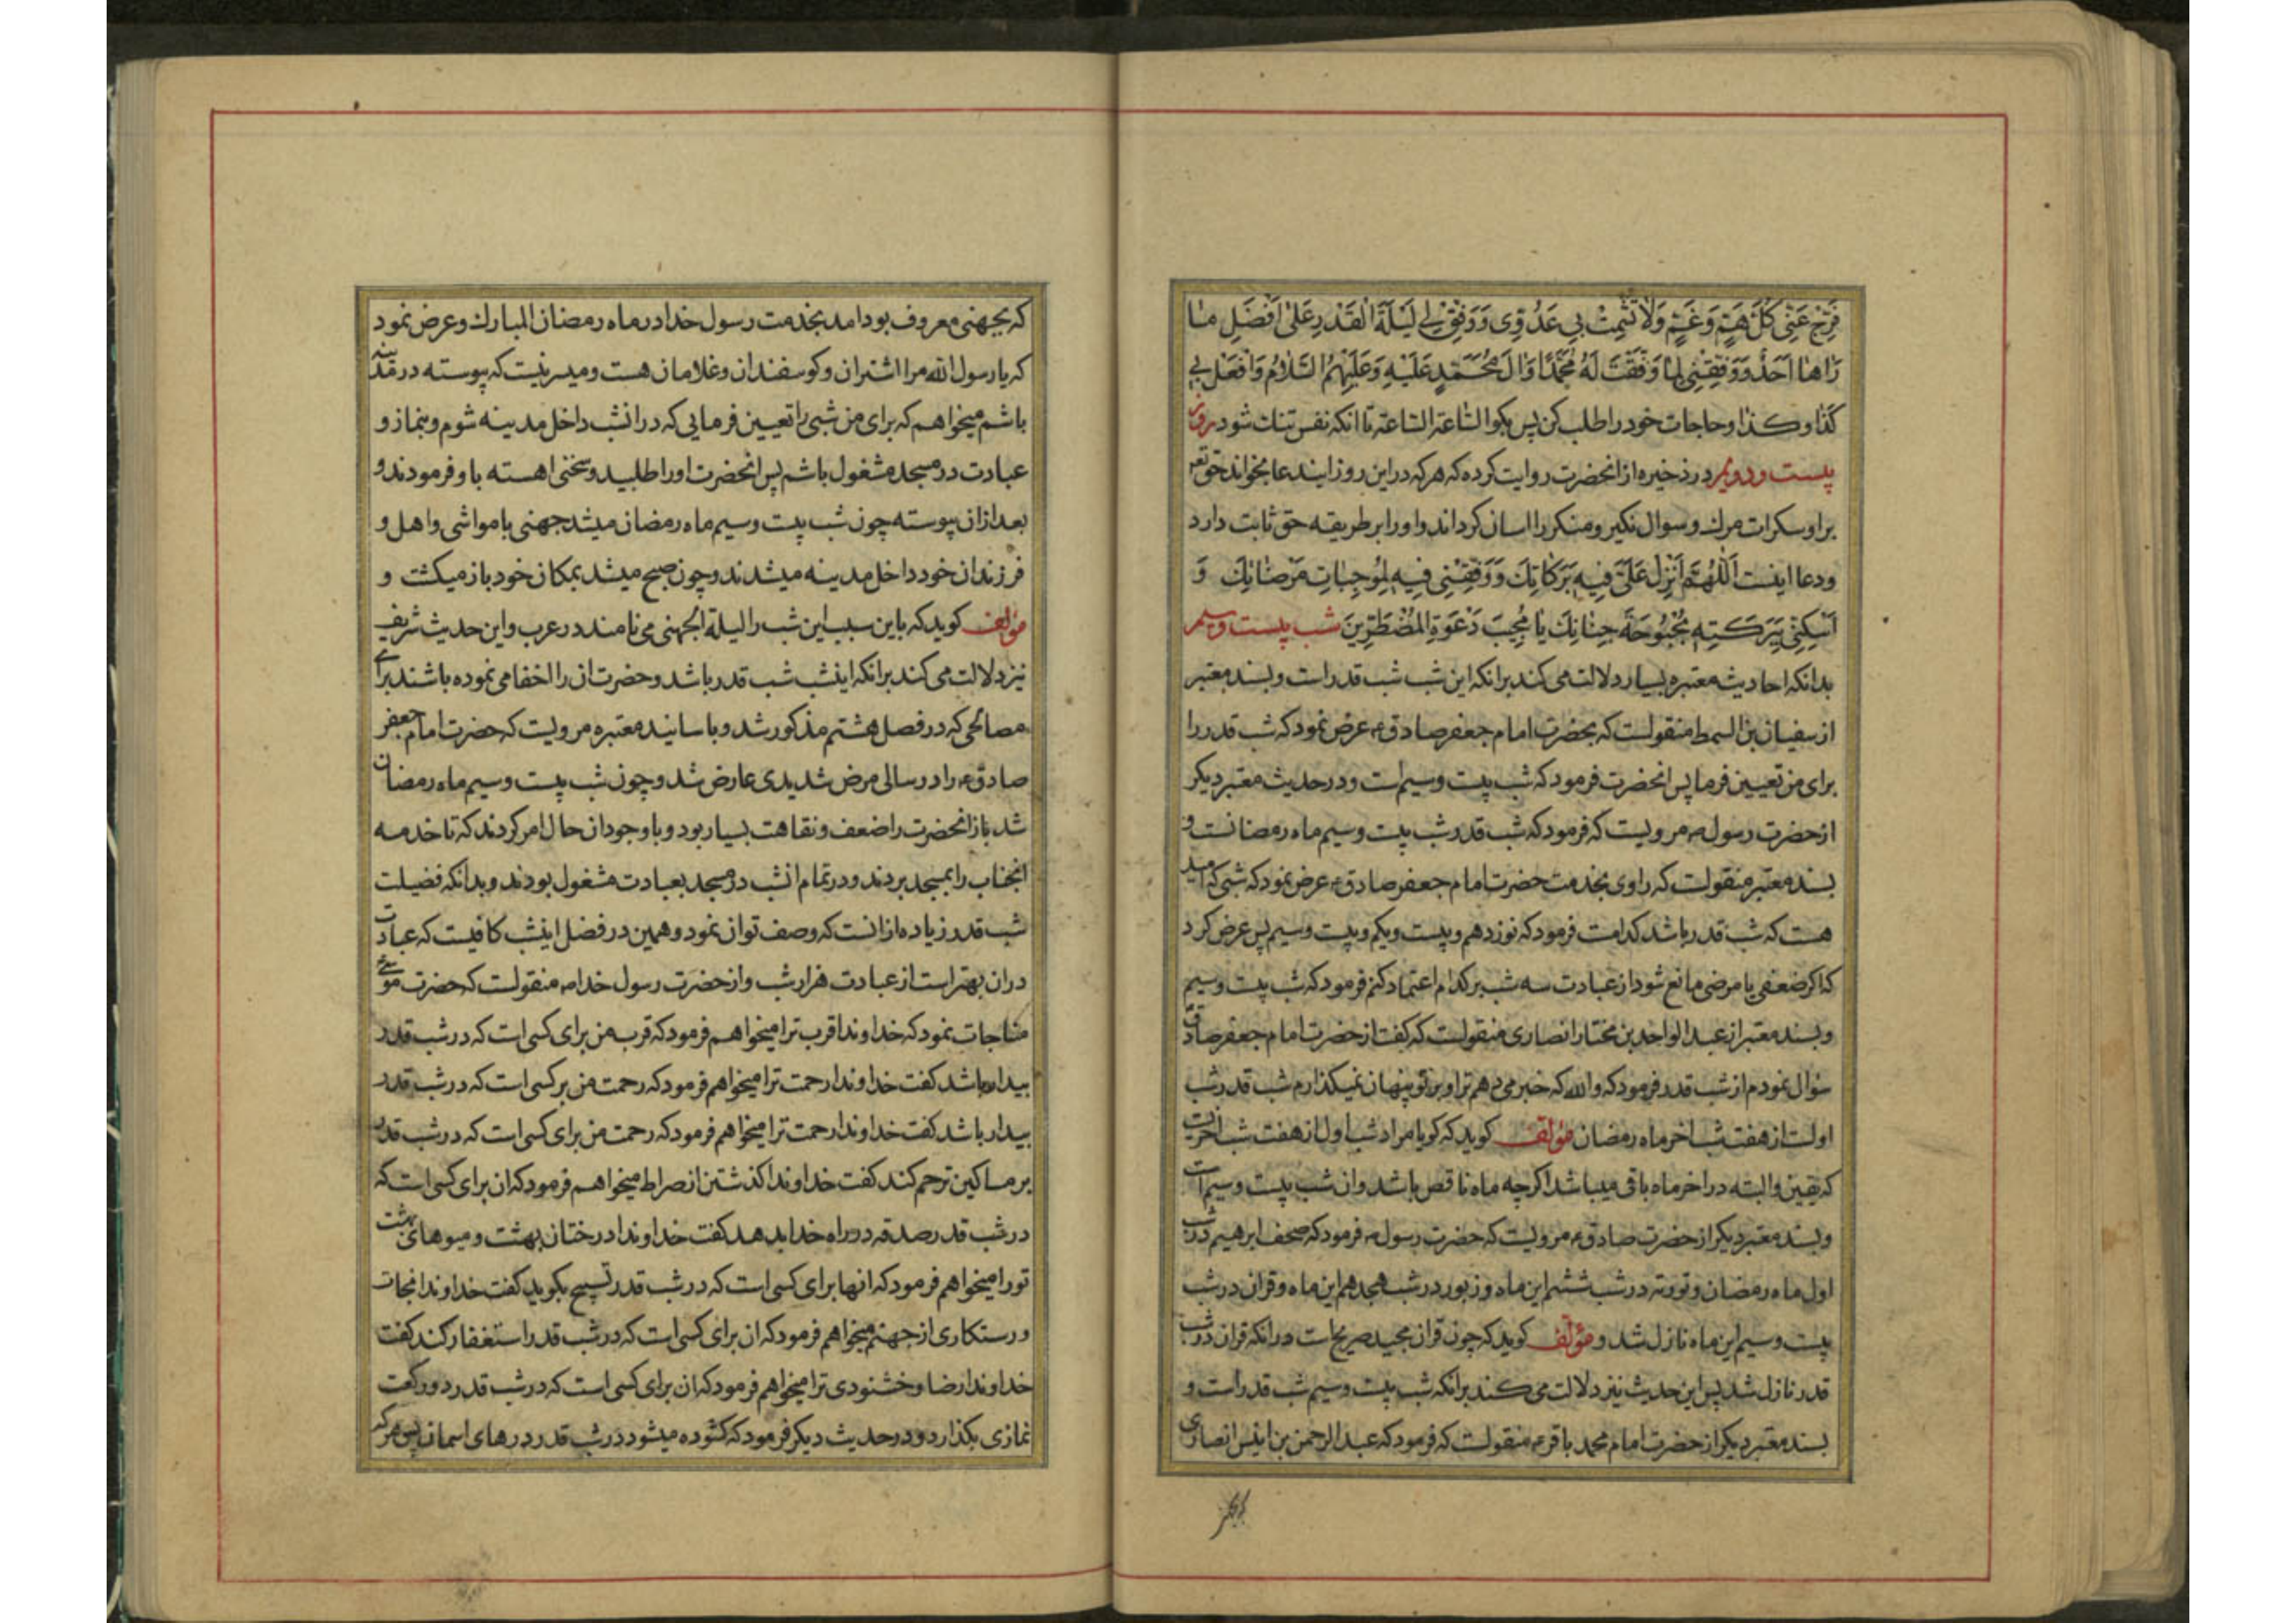 فَرِّجْ عَنِّي كُلَّ هَمٍّ وَ غَمٍّ وَلَا تُشْمِتْ بِي عَدُوِّي وَ وَفِّقْ لِي لَيْلَةَ الْقَدْرِ عَلىٰ اَفْضَلِ مٰا
رَاٰهٰا اَحَدٌ وَ وَفِّقْنِي لِمٰا وَفَّقْتَ لَهُ مُحَمَّدًا وَاٰلَ مُحَمَّدٍ عَلَيْهِ وَعَلَيْهِمُ السَّلٰامُ وَافْعَلْ بِي
كَذٰا و كذٰا و حاجات خود را طلب کن پس بکو الساعة الساعة تا انکه نفس تنک شود روز
بیست و دویم در ذخیره از انحضرت روایت کرده که هر که در این روز ایندعا بخواند حقتعه
بر او سکرات مرک و سوال نکیر و منکر را اسان کرداند و او را بر طریقه حق ثابت دارد
و دعا اینست اَللّٰهُمَّ اَنْزِلْ عَلَيَّ فِيهِ بَرَكٰاتِكَ وَ وَفِّقْنِي فِيهِ لِمُوجِبٰاتِ مَرْضٰاتِكَ وَ
اَسْكِنِّي بِبَرَكَتِهِ بُحْبُوحَةَ جِنٰانِكَ يٰا مُجِيبَ دَعْوَةِ الْمُضْطَرِّينَ شب بیست و سیم
بدانکه احادیث معتبره بسیار دلالت می کند بر انکه این شب شب قدر است و بسند معتبر
از سفیان بن السمط منقولست که بحضرت امام جعفر صادق ع عرض نمود که شب قدر را
برای من تعیین فرما پس انحضرت فرمود که شب بیست و سیم است و در حدیث معتبر دیکر
از حضرت رسول ص مرویست که فرمود که شب قدر شب بیست و سیم ماه رمضانست و
بسند معتبر منقولست که راوی بخدمت حضرت امام جعفر صادق ع عرض نمود که شبی که امید
هست که شب قدر باشد کدامست فرمود که نوزدهم و بیست و یکم و بیست و سیم پس عرض کرد
که اکر ضعفی یا مرضی مانع شود از عبادت سه شب بر کدام اعتماد کنم فرمود که شب بیست و سیم
و بسند معتبر از عبد الواحد بن مختار انصاری منقولست که کفت از حضرت امام جعفر صادق
سؤال نمودم از شب قدر فرمود که والله که خبر می دهم ترا و بر تو پنهان نمیکذارم شب قدر شب
اولست از هفت شب اخر ماه رمضان مؤلف کوید که کویا مراد شب اول از هفت شب اخریست
که یقین و البته در اخر ماه باقی میباشد اکرچه ماه ناقص باشد و ان شب بیست و سیم است
و بسند معتبر دیکر از حضرت صادق ع مرویست که حضرت رسول ص فرمود که صحف ابرهیم در شب
اول ماه رمضان و توریة در شب ششم این ماه و زبور در شب هجدهم این ماه و قران در شب
بیست و سیم این ماه نازل شد و مؤلف کوید که چون قران مجید صریح است در انکه قران در شب
قدر نازل شد پس این حدیث نیز دلالت می کند بر انکه شب بیست و سیم شب قدر است و
بسند معتبر دیکر از حضرت امام محمد باقر ع منقولست که فرمود که عبد الرحمن بن انیس انصاری
که بجهنی معروف بود امد بخدمت رسول خدا در ماه رمضان المبارک و عرض نمود
که یا رسول الله مرا اشتران و کوسفندان و غلامان هست و میسر نیست که پیوسته در مدینه
باشم میخواهم که برای من شبی را تعیین فرمایی که در انشب داخل مدینه شوم و بنماز و
عبادت در مسجد مشغول باشم پس انحضرت او را طلبید و سخنی اهسته با و فرمودند و
بعد از ان پیوسته چون شب بیست و سیم ماه رمضان میشد جهنی با مواشی و اهل و
فرزندان خود داخل مدینه میشدند و چون صبح میشد بمکان خود باز میکشت و
مؤلف کوید که باین سبب این شب را لیلة الجهنی می نامند در عرب و این حدیث شریف
نیز دلالت می کند بر انکه اینشب شب قدر باشد و حضرت ان را اخفا می نموده باشند برای
مصالحی که در فصل هشتم مذکور شد و باسانید معتبره مرویست که حضرت امام جعفر
صادق ع را در سالی مرض شدیدی عارض شد و چون شب بیست و سیم ماه رمضان
شد باز انحضرت را ضعف و نقاهت بسیار بود و با وجود ان حال امر کردند که تا خدمه
انجناب را بمسجد بردند و در تمام انشب در مسجد بعبادت مشغول بودند و بدانکه فضیلت
شب قدر زیاده از انست که وصف توان نمود و همین در فضل اینشب کافیست که عبادت
در ان بهتر است از عبادت هزار شب و از حضرت رسول خدا ص منقولست که حضرت موسی
مناجات نمود که خداوندا قرب ترا میخواهم فرمود که قرب من برای کسی است که در شب قدر
بیدار باشد کفت خداوندا رحمت ترا میخواهم فرمود که رحمت من بر کسی است که در شب قدر
بیدار باشد کفت خداوندا رحمت ترا میخواهم فرمود که رحمت من برای کسی است که در شب قدر
بر مساکین ترحم کند کفت خداوندا کذشتن از صراط میخواهم فرمود که ان برای کسی است که
در شب قدر صدقه در راه خدا بدهد کفت خداوندا درختان بهشت و میوهای بهشت
تو را میخواهم فرمود که انها برای کسی است که در شب قدر تسبیح بکوید کفت خداوندا نجات
و رستکاری از جهنم میخواهم فرمود که ان برای کسی است که در شب قدر استغفار کند کفت
خداوندا رضا و خشنودی ترا میخواهم فرمود که ان برای کسی است که در شب قدر دو رکعت
نمازی بکذارد و در حدیث دیکر فرمود که کشوده میشود در شب قدر درهای اسمان پس هر که